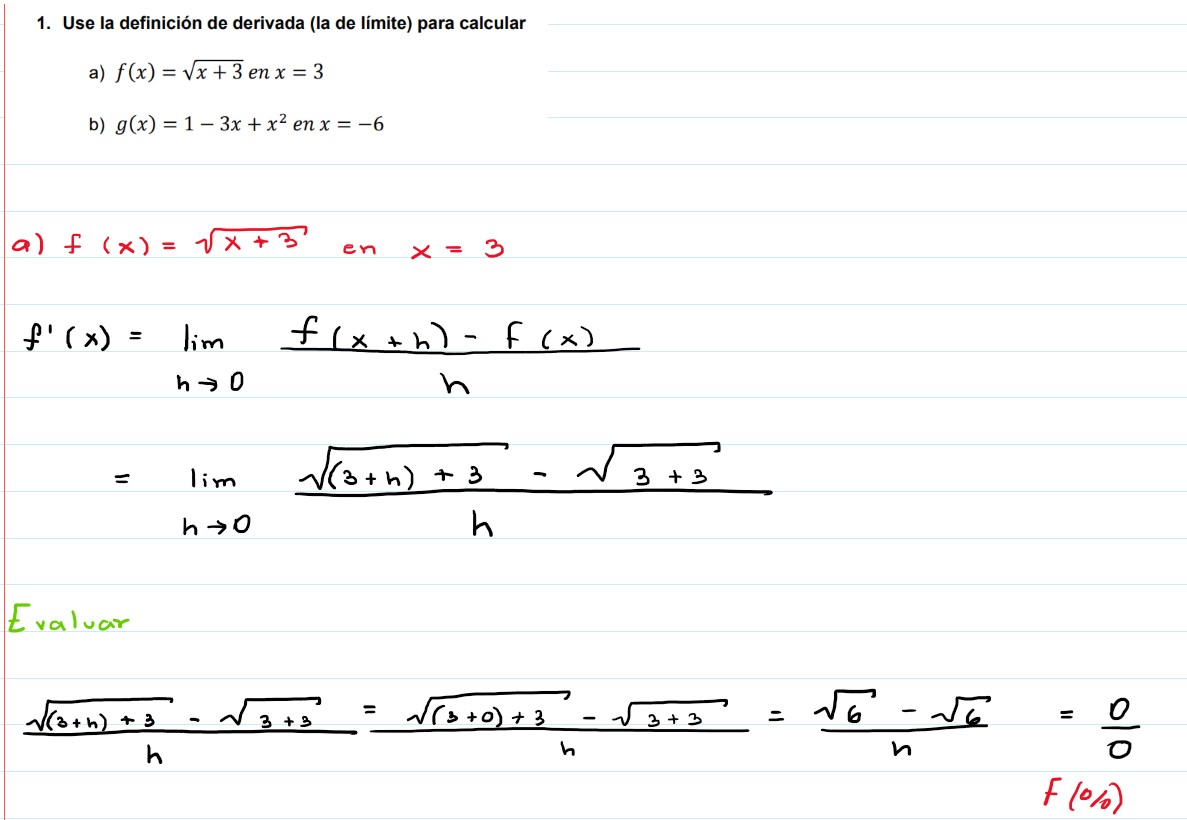 1. Use la definición de derivada (la de límite) para calcular
a) f(x) = √(x + 3) en x = 3
b) g(x) = 1 − 3x + x² en x = −6
a) f (x) = √(x + 3) en x = 3
f'(x) = lim h→0 (f(x + h) - f(x)) / h
= lim h→0 (√((3+h) + 3) - √(3 + 3)) / h
Evaluar
(√((3+h) + 3) - √(3+3)) / h = (√((3+0) + 3) - √(3+3)) / h = (√6 - √6) / h = 0/0
F(0/0)